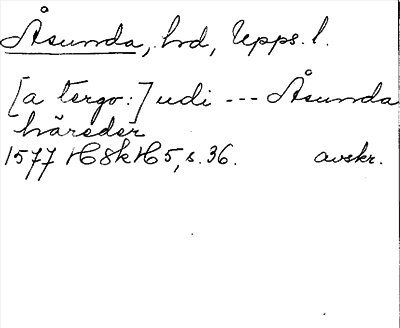 Åsunda, hd, Upps. l.
[a tergo:] udi --- Åsunda
häreder
1577 HSkH 5, s. 36. avskr.